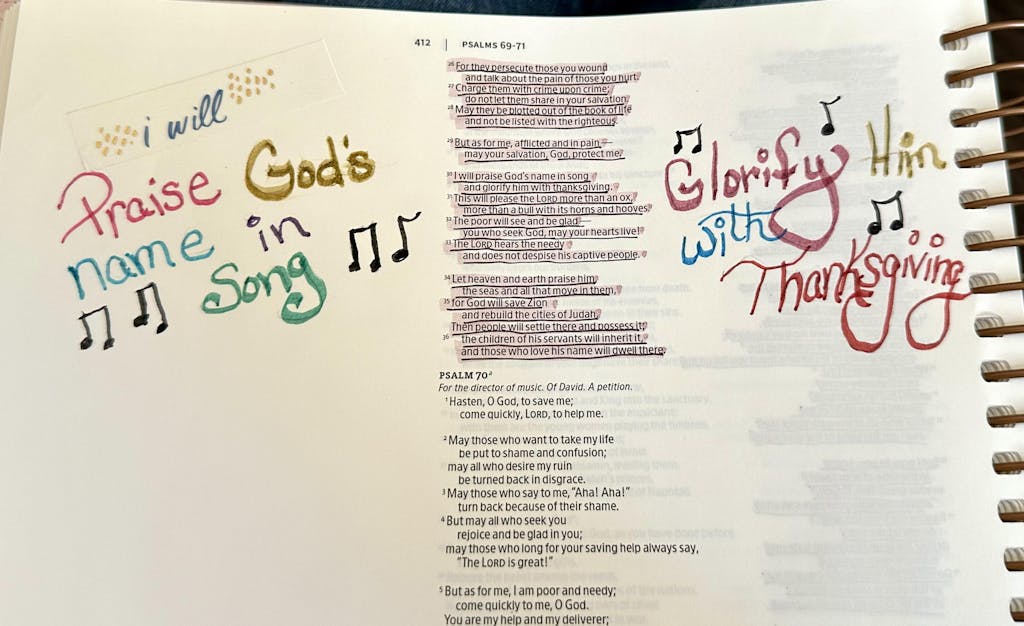 412 | PSALMS 69-71
i will
Praise God's
name in
Song
26 For they persecute those you wound
and talk about the pain of those you hurt.
27 Charge them with crime upon crime;
do not let them share in your salvation.
28 May they be blotted out of the book of life
and not be listed with the righteous.
29 But as for me, afflicted and in pain—
may your salvation, God, protect me.
30 I will praise God's name in song
and glorify him with thanksgiving.
31 This will please the LORD more than an ox,
more than a bull with its horns and hooves.
32 The poor will see and be glad—
you who seek God, may your hearts live!
33 The LORD hears the needy
and does not despise his captive people.
34 Let heaven and earth praise him,
the seas and all that move in them,
35 for God will save Zion
and rebuild the cities of Judah.
Then people will settle there and possess it;
36 the children of his servants will inherit it,
and those who love his name will dwell there.
PSALM 70²
For the director of music. Of David. A petition.
1 Hasten, O God, to save me;
come quickly, LORD, to help me.
2 May those who want to take my life
be put to shame and confusion;
may all who desire my ruin
be turned back in disgrace.
3 May those who say to me, "Aha! Aha!"
turn back because of their shame.
4 But may all who seek you
rejoice and be glad in you;
may those who long for your saving help always say,
"The LORD is great!"
5 But as for me, I am poor and needy;
come quickly to me, O God.
You are my help and my deliverer;
Glorify Him
with
Thanksgiving